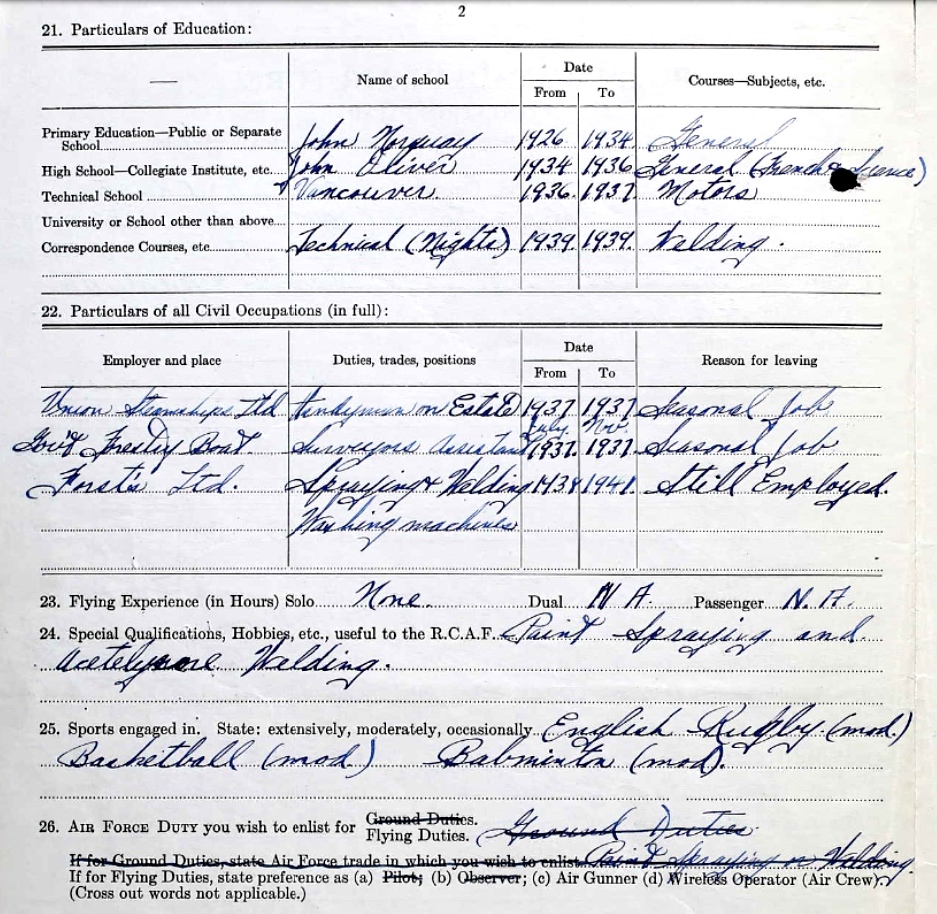 2
21. Particulars of Education:
— Name of school Date Courses—Subjects, etc.
From To
Primary Education—Public or Separate
School John Norquay 1926 1934 General
High School—Collegiate Institute, etc. John Oliver 1934 1936 General (French & Science)
Technical School Vancouver 1936 1937 Motors
University or School other than above
Correspondence Courses, etc. Technical (Nights) 1939. 1939. Welding.
22. Particulars of all Civil Occupations (in full):
Employer and place Duties, trades, positions Date Reason for leaving
From To
Union Steamships Ltd Handyman on Estate 1937 1937 Seasonal Job
July Nov.
Gov't Forestry Boat Surveyors Assistant 1937. 1937. Seasonal Job
Forst's Ltd. Spraying & Welding 1938 1941. Still Employed.
Washing machines
23. Flying Experience (in Hours) Solo None. Dual N A. Passenger N. A.
24. Special Qualifications, Hobbies, etc., useful to the R.C.A.F. Paint Spraying and
Welding.
25. Sports engaged in. State: extensively, moderately, occasionally English Rugby (mod.)
Basketball (mod.) Babminton (mod).
26. AIR FORCE DUTY you wish to enlist for Ground Duties. Ground Duties.
Flying Duties.
If for Ground Duties, state Air Force trade in which you wish to enlist Paint Spraying or Welding.
If for Flying Duties, state preference as (a) Pilot; (b) Observer; (c) Air Gunner (d) Wireless Operator (Air Crew).
(Cross out words not applicable.)